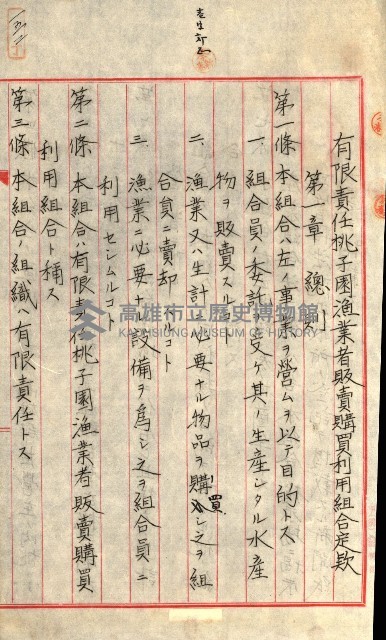 壱字訂正
有限責任桃子園漁業者販賣購買利用組合定款
第一章 總則
第一條 本組合ハ左ノ事業ヲ營ムヲ以テ目的トス
一、組合員ノ委託ヲ受ケ其ノ生産シタル水産
物ヲ販賣スルコト
二、漁業又ハ生計ニ必要ナル物品ヲ購買シ之ヲ組
合員ニ賣却スルコト
三、漁業ニ必要ナル設備ヲ爲シ之ヲ組合員ニ
利用セシムルコト
第二條 本組合ハ有限責任桃子園漁業者販賣購買
利用組合ト稱ス
第三條 本組合ノ組織ハ有限責任トス
高雄市立歷史博物館
KAOHSIUNG MUSEUM OF HISTORY